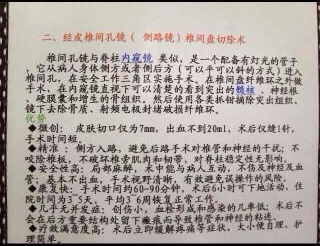 二、经皮椎间孔镜( 侧路镜)椎间盘切除术
椎间孔镜与脊柱内窥镜 类似,是一个配备有灯光的管子
,它从病人身体侧方或者侧后方(可以平可以斜的方式)进入
椎间孔,在安全工作三角区实施手术。在椎间盘纤维环之外做
手术,在内窥镜直视下可以清楚的看到突出的髓核 、神经根
、硬膜囊和增生的骨组织。然后使用各类抓钳摘除突出组织、
镜下去除骨质、射频电极修复破损纤维环。
优势
◆微创: 皮肤切口仅为7mm,出血不到20ml,术后仅缝1针,
手术时间短。
◆精准:侧方入路,避免后路手术对椎管和神经的干扰;不
咬除椎板,不破坏椎旁肌肉和韧带,对脊柱稳定性无影响。
◆安全性高:局部麻醉,术中能与病人互动,不伤及神经及血
管;基本不出血,手术视野清晰,有效避免误操作的风险。
◆康复快:手术时间约60-90分钟,术后6小时可下地活动,住
院时间为3~5天,平均3~6周恢复正常工作。
◆几乎无并发症:创伤小,血栓形成和感染的几率低;术后不
会在后方重要结构处留下瘢痕而导致椎管和神经的粘连。
◆疗效满意度高:术后立即缓解疼痛等症状,大小便自理,护
理简单。